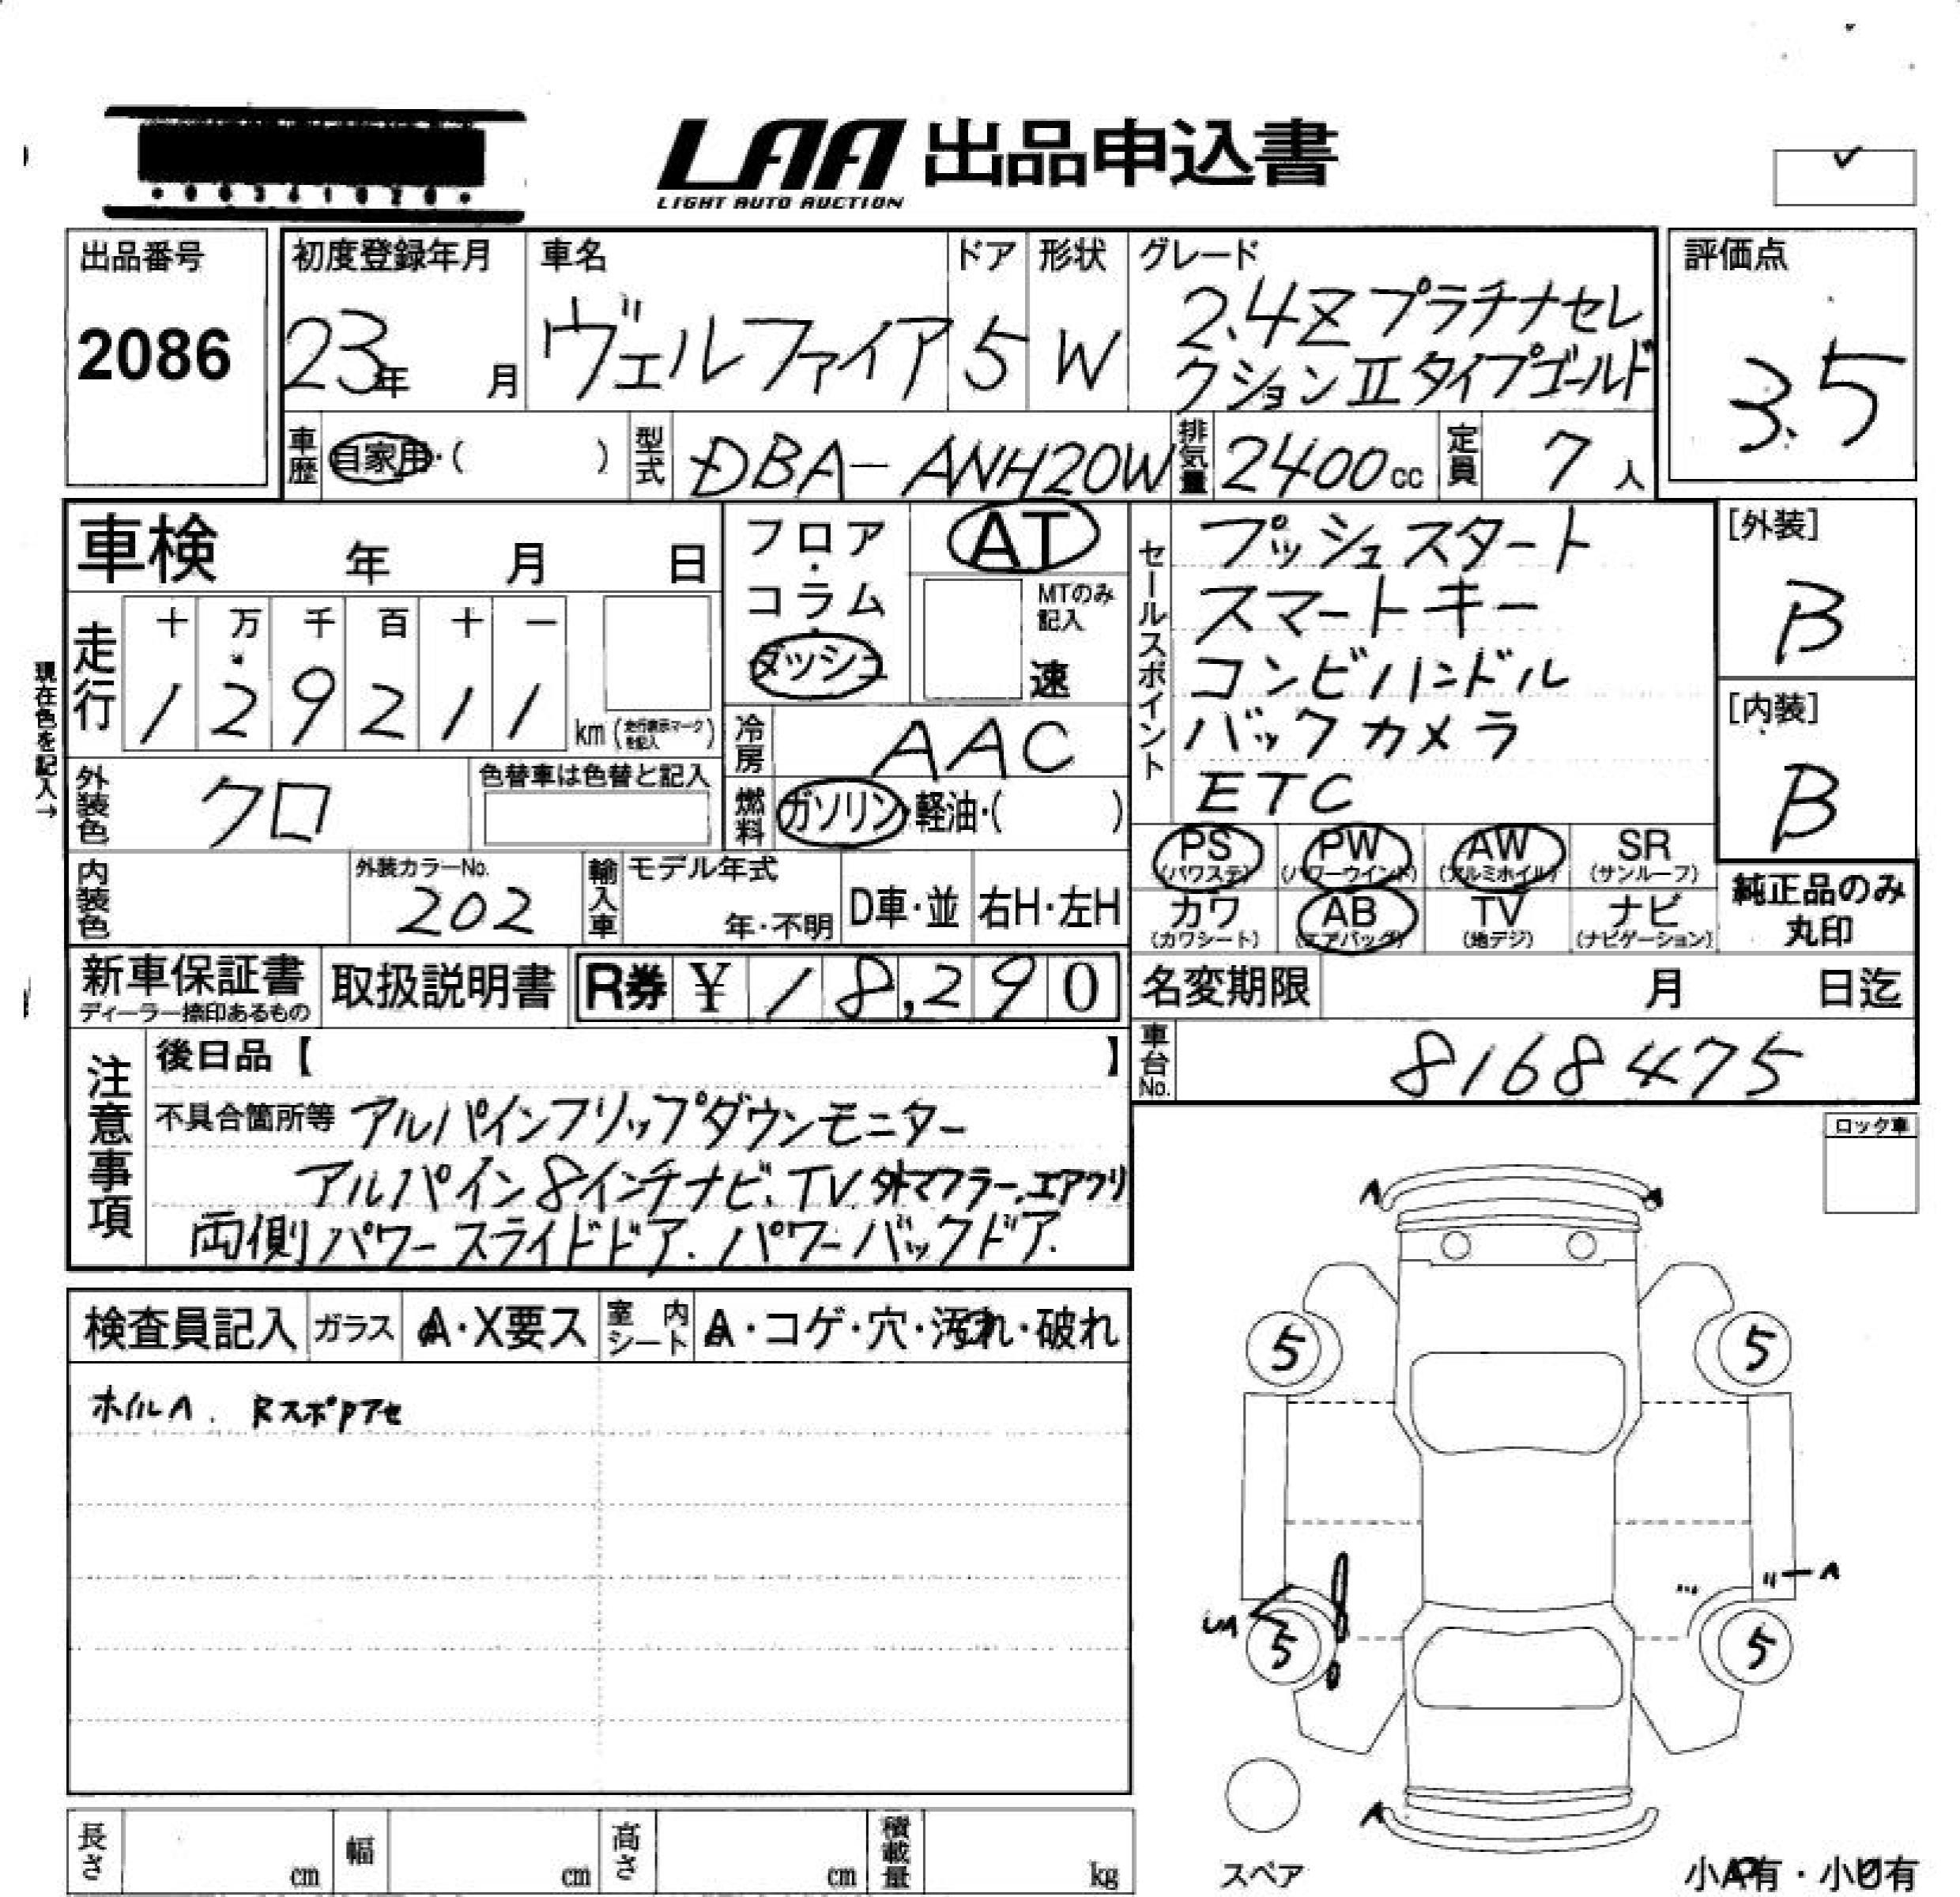 LAA 出品申込書
LIGHT AUTO AUCTION
出品番号
2086
初度登録年月
23年 月
車名
ヴェルファイア
ドア
5
形状
W
グレード
2.4Z プラチナセレ
クションⅡタイプゴールド
評価点
3.5
車歴
自家用・( )
型式
DBA-ANH20W
排気量
2400cc
定員
7人
車検 年 月 日
フロア・
コラム・
ダッシュ
AT
MTのみ
記入
速
セールスポイント
プッシュスタート
スマートキー
コンビハンドル
バックカメラ
ETC
[外装]
B
[内装]
B
現在色を記入→
走行
十 万 千 百 十 一
1 2 9 2 1 1
km(走行表示マークを記入)
冷房
AAC
燃料
ガソリン・軽油・( )
外装色
クロ
色替車は色替と記入
内装色
外装カラーNo.
202
輸入車
モデル年式
年・不明
D車・並
右H・左H
PS
(パワステ)
PW
(パワーウインド)
AW
(アルミホイル)
SR
(サンルーフ)
カワ
(カワシート)
AB
(エアバッグ)
TV
(地デジ)
ナビ
(ナビゲーション)
純正品のみ
丸印
新車保証書
ディーラー捺印あるもの
取扱説明書
R券 ¥ 18,290
名変期限 月 日迄
車台No.
8168475
注意事項
後日品【 】
不具合箇所等 アルパインフリップダウンモニター
アルパイン8インチナビ、TV、外マフラー、エアクリ
両側パワースライドドア、パワーバックドア
ロック車
検査員記入
ガラス
A・X要ス
室内
シート
A・コゲ・穴・汚れ・破れ
ホイルA. Rスポアセ
A
5 5
A
5 5
A
スペア
小A有・小U有
長さ cm
幅 cm
高さ cm
積載量 kg